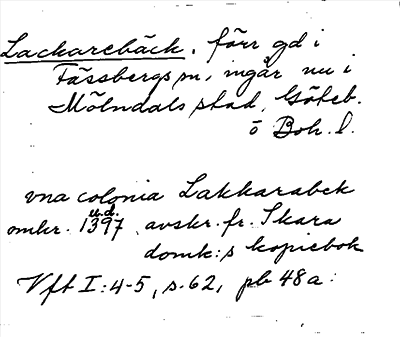 Lackarebäck, förr gd i
Fässbergs sn, ingår nu i
Mölndals stad, Göteb.
o Boh. l.
vna colonia Lakkarabek
u.d.
omkr. 1397 avskr. fr. Skara
domk:s kopiebok
Vft I:4-5, s.62, pb 48a.